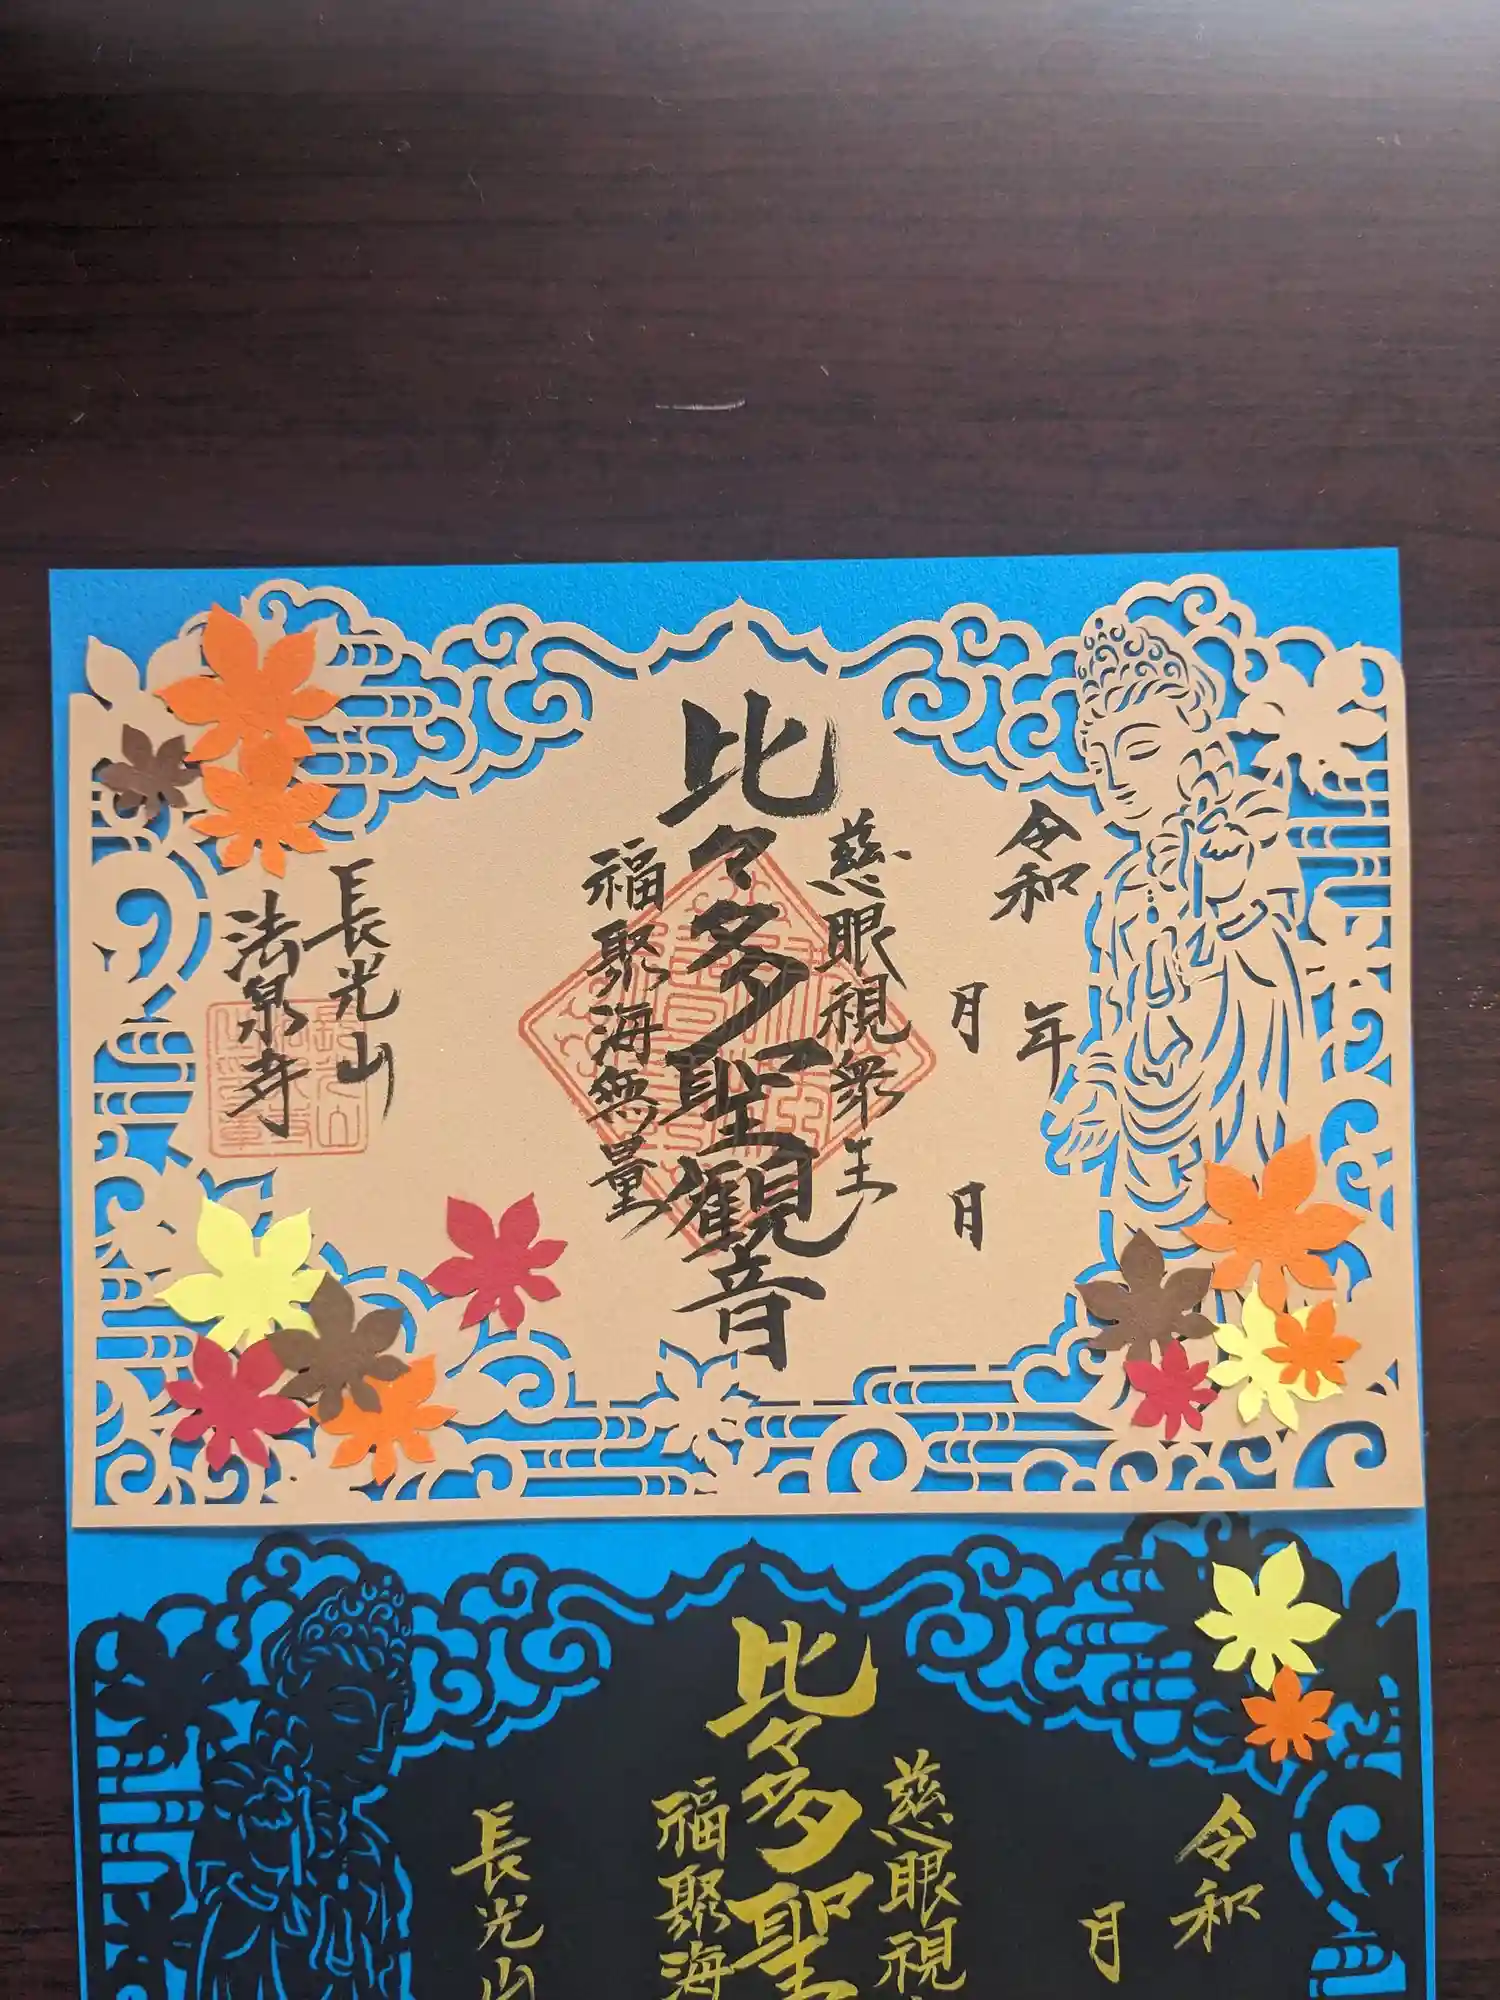 令和 年
月 日
慈眼視衆生
比々多聖観音
福聚海無量
長光山
法泉寺
令和
月
慈眼視
比々多聖
福聚海
長光山